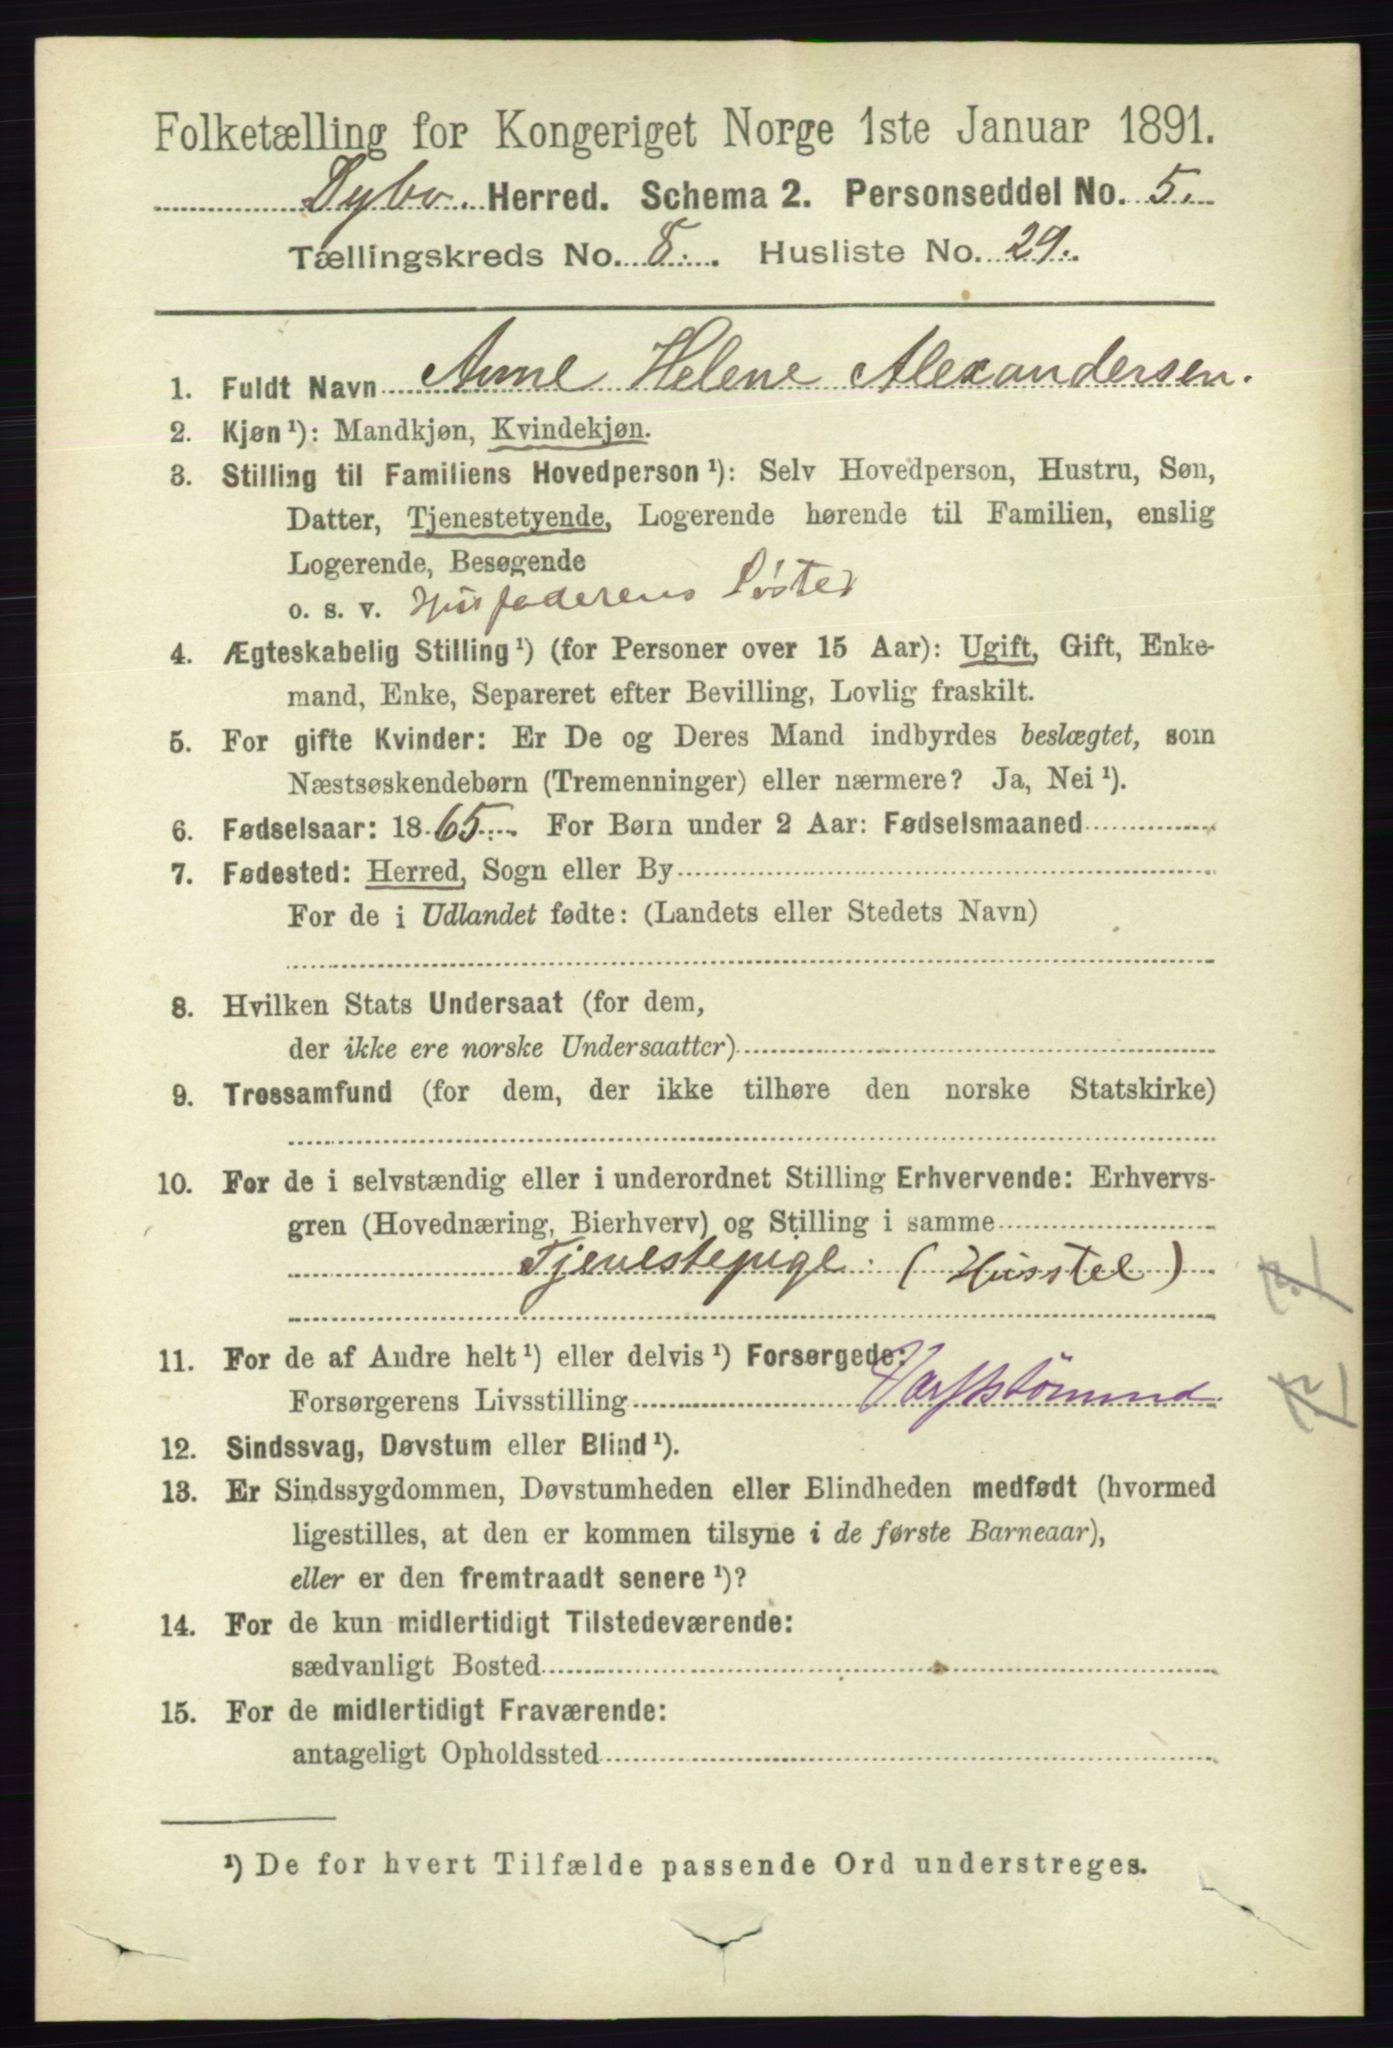 Folketælling for Kongeriget Norge 1ste Januar 1891.
Dybo. Herred. Schema 2. Personseddel No. 5.
Tællingskreds No. 8. Husliste No. 29.
1. Fuldt Navn Anne Helene Alexandersen.
2. Kjøn ¹): Mandkjøn, Kvindekjøn.
3. Stilling til Familiens Hovedperson ¹): Selv Hovedperson, Hustru, Søn,
Datter, Tjenestetyende, Logerende hørende til Familien, enslig
Logerende, Besøgende
o. s. v. Husfaderens Søster
4. Ægteskabelig Stilling ¹) (for Personer over 15 Aar): Ugift, Gift, Enke-
mand, Enke, Separeret efter Bevilling, Lovlig fraskilt.
5. For gifte Kvinder: Er De og Deres Mand indbyrdes beslægtet, som
Næstsøskendebørn (Tremenninger) eller nærmere? Ja, Nei ¹).
6. Fødselsaar: 1865. For Børn under 2 Aar: Fødselsmaaned
7. Fødested: Herred, Sogn eller By
For de i Udlandet fødte: (Landets eller Stedets Navn)
8. Hvilken Stats Undersaat (for dem,
der ikke ere norske Undersaatter)
9. Trossamfund (for dem, der ikke tilhøre den norske Statskirke)
10. For de i selvstændig eller i underordnet Stilling Erhvervende: Erhvervs-
gren (Hovednæring, Bierhverv) og Stilling i samme
Tjenestepige. (Husstel)
11. For de af Andre helt ¹) eller delvis ¹) Forsørgede:
Forsørgerens Livsstilling
12. Sindssvag, Døvstum eller Blind ¹).
13. Er Sindssygdommen, Døvstumheden eller Blindheden medfødt (hvormed
ligestilles, at den er kommen tilsyne i de første Barneaar),
eller er den fremtraadt senere ¹)?
14. For de kun midlertidigt Tilstedeværende:
sædvanligt Bosted
15. For de midlertidigt Fraværende:
antageligt Opholdssted
¹) De for hvert Tilfælde passende Ord understreges.